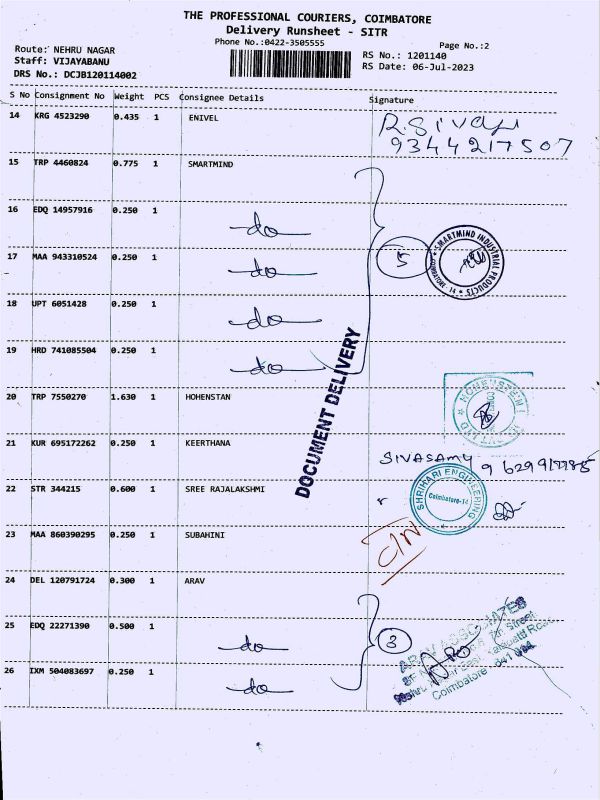 THE PROFESSIONAL COURIERS, COIMBATORE
Delivery Runsheet - SITR
Phone No.:0422-3505555
Page No.:2
Route: NEHRU NAGAR
Staff: VIJAYABANU
DRS No.: DCJB120114002
RS No.: 1201140
RS Date: 06-Jul-2023
S No Consignment No Weight PCS Consignee Details Signature
14 KRG 4523290 0.435 1 ENIVEL
R.Sivaji
9344217507
15 TRP 4460824 0.775 1 SMARTMIND
16 EDQ 14957916 0.250 1 do
17 MAA 943310524 0.250 1 do
5
SMARTMIND INDUSTRIAL PRODUCTS
COIMBATORE - 14
18 UPT 6051428 0.250 1 do
19 HRD 741085504 0.250 1 do
DOCUMENT DELIVERY
20 TRP 7550270 1.630 1 HOHENSTAN
21 KUR 695172262 0.250 1 KEERTHANA
SIVASAMY
22 STR 344215 0.600 1 SREE RAJALAKSHMI
SHRIHARI ENGINEERING
Coimbatore-14
23 MAA 860390295 0.250 1 SUBAHINI
24 DEL 120791724 0.300 1 ARAV
25 EDQ 22271390 0.500 1 do
3
ARAV ASSOCIATES
Street
Coimbatore
26 IXM 504083697 0.250 1 do